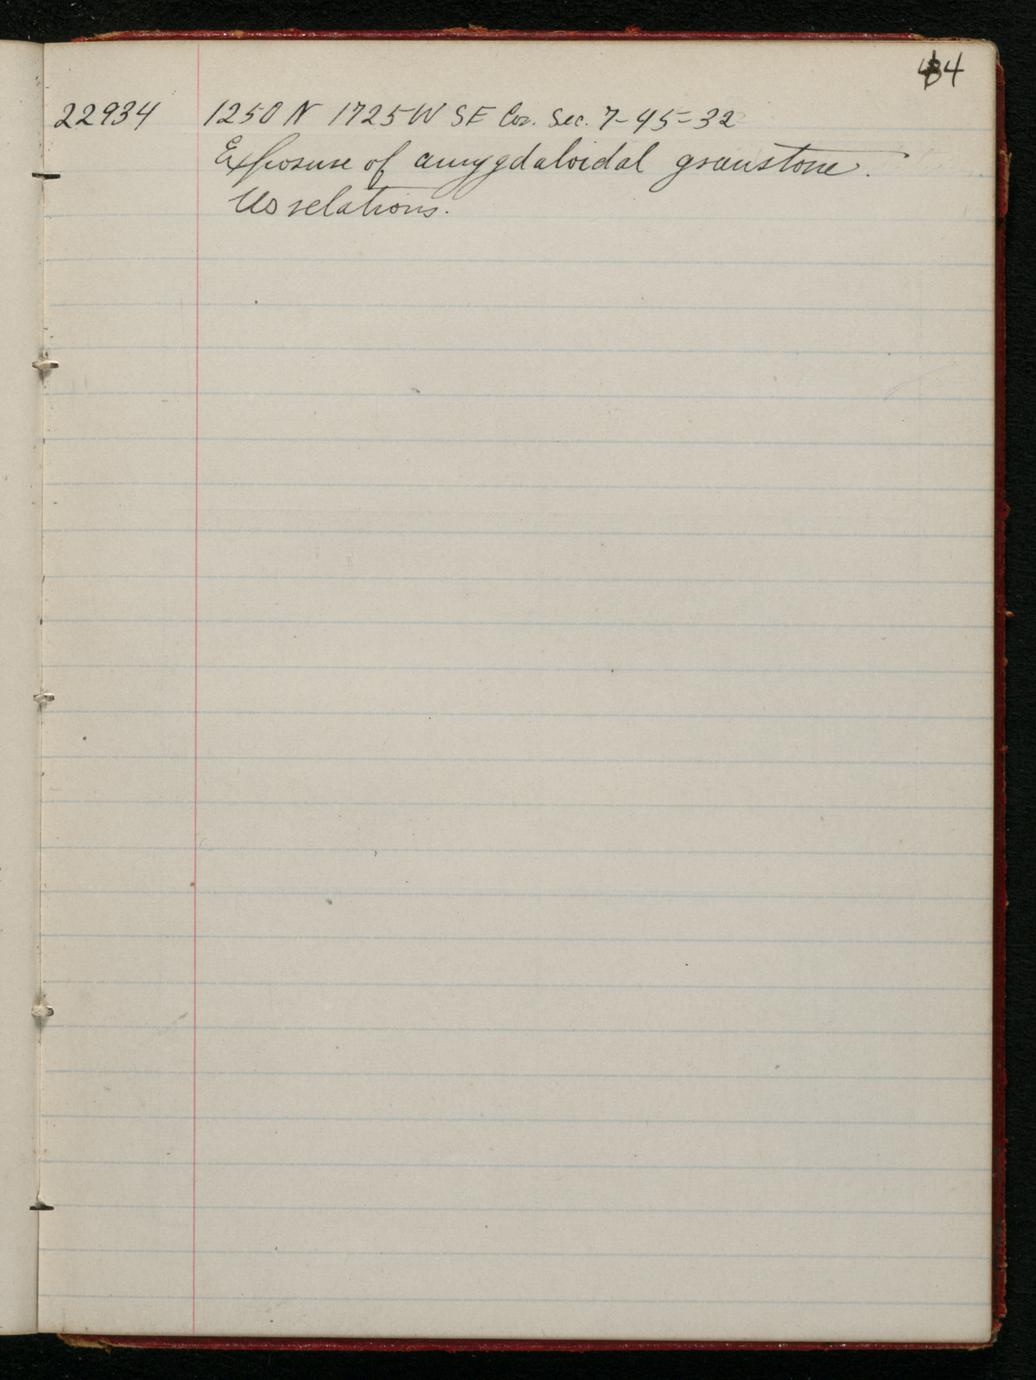 34
22934 1250 N 1725 W SE Cor. Sec. 7-45-32
Exposure of amygdaloidal greenstone.
No relations.